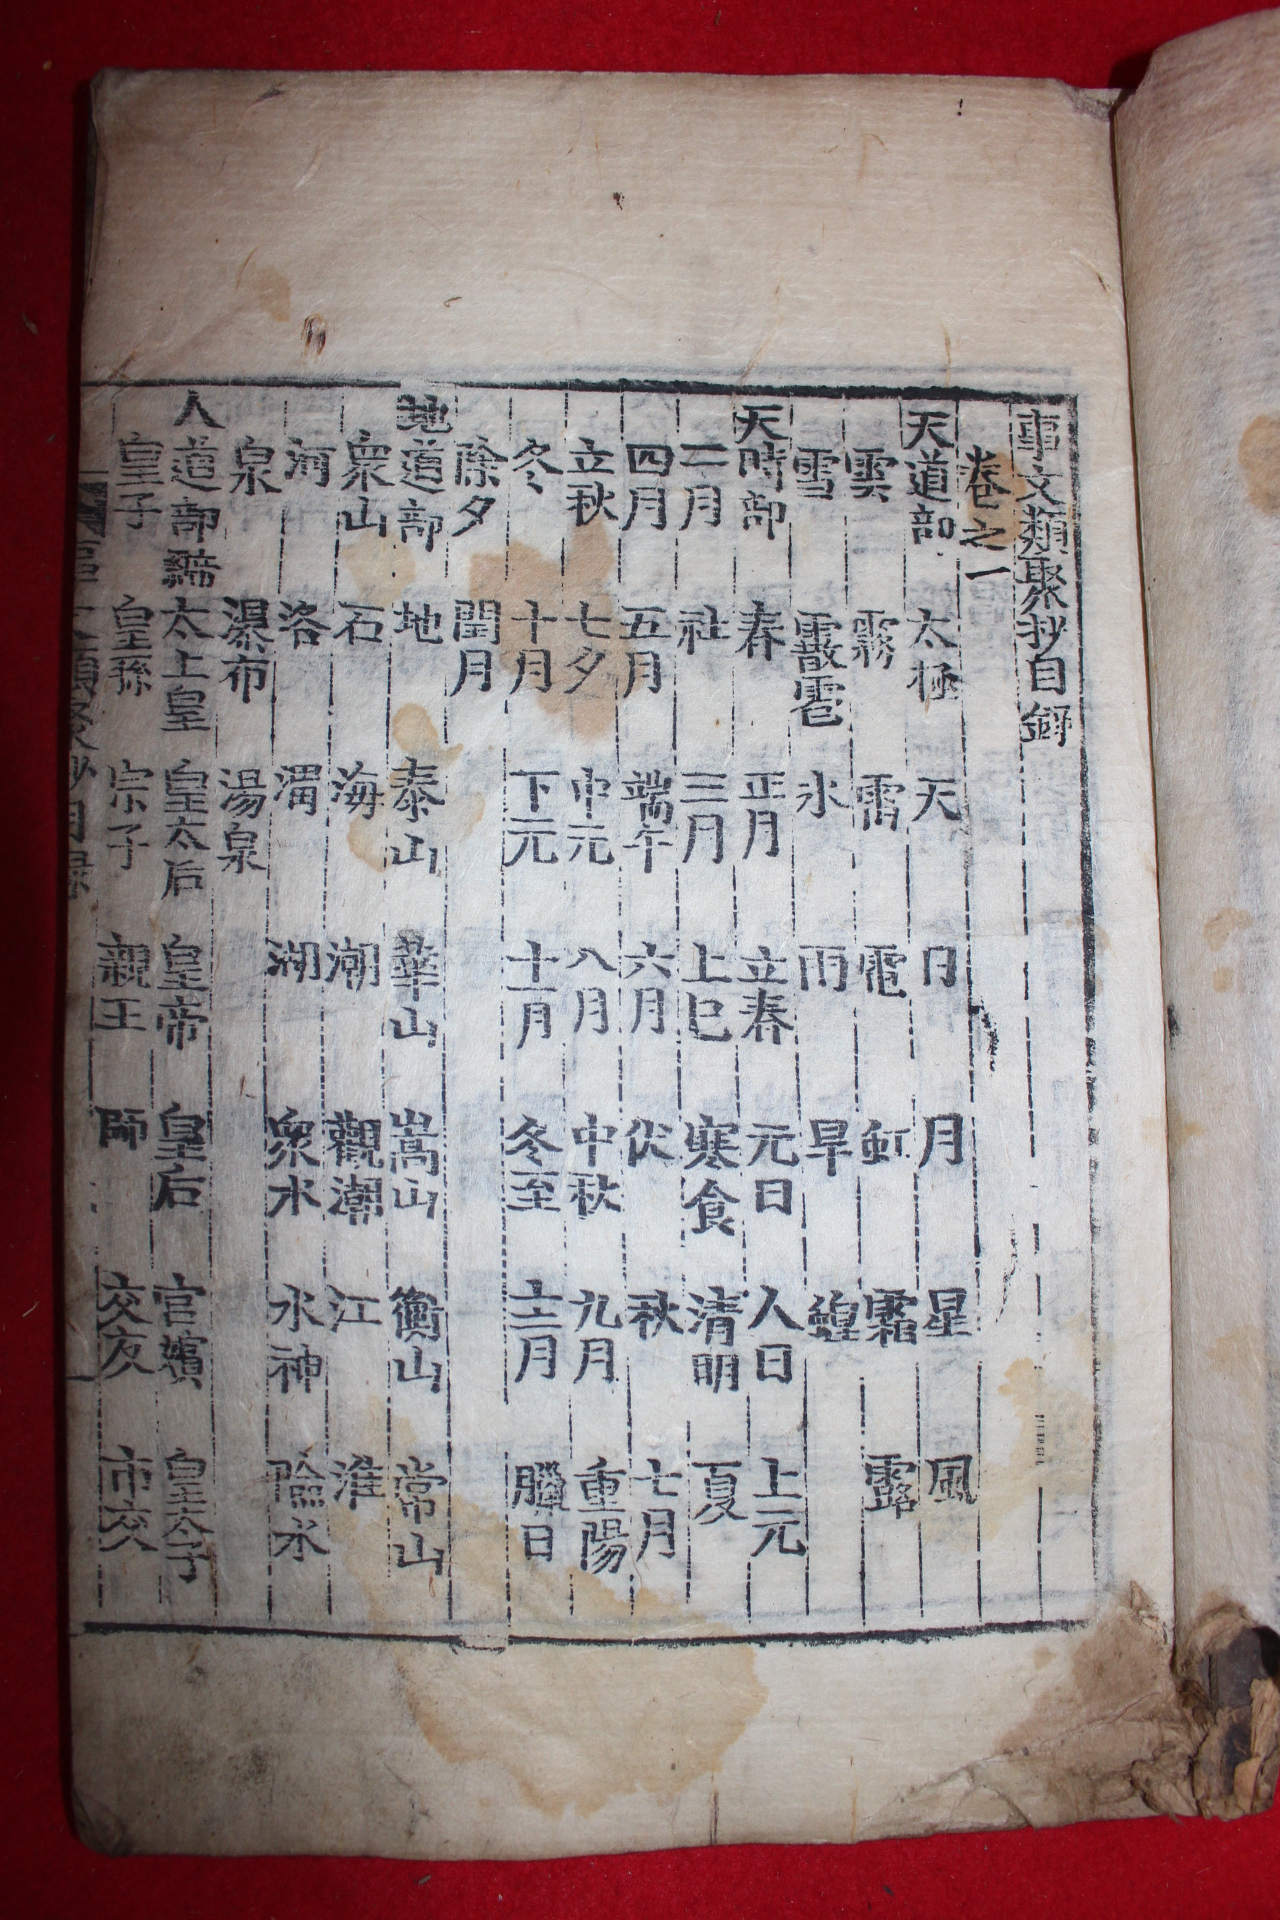 事文類聚抄目錄
卷之一
天道部 太極 天 日 月 星 風
雲 霧 雷 電 虹 霜 露
雪 霰雹 氷 雨 旱 蝗
天時部 春 正月 立春 元日 人日 上元
二月 社 三月 上巳 寒食 清明 夏
四月 五月 端午 六月 伏 秋 七月
立秋 七夕 中元 八月 中秋 九月 重陽
冬 十月 下元 十一月 冬至 十二月 臘日
除夕 閏月
地道部 地 泰山 華山 嵩山 衡山 常山
衆山 石 海 潮 觀潮 江 淮
河 洛 渭 湖 衆水 水神 險水
泉 瀑布 湯泉
人道部 太上皇 皇太后 皇帝 皇后 官嬪 皇太子
皇子 皇孫 宗子 親王 師 交友 市交